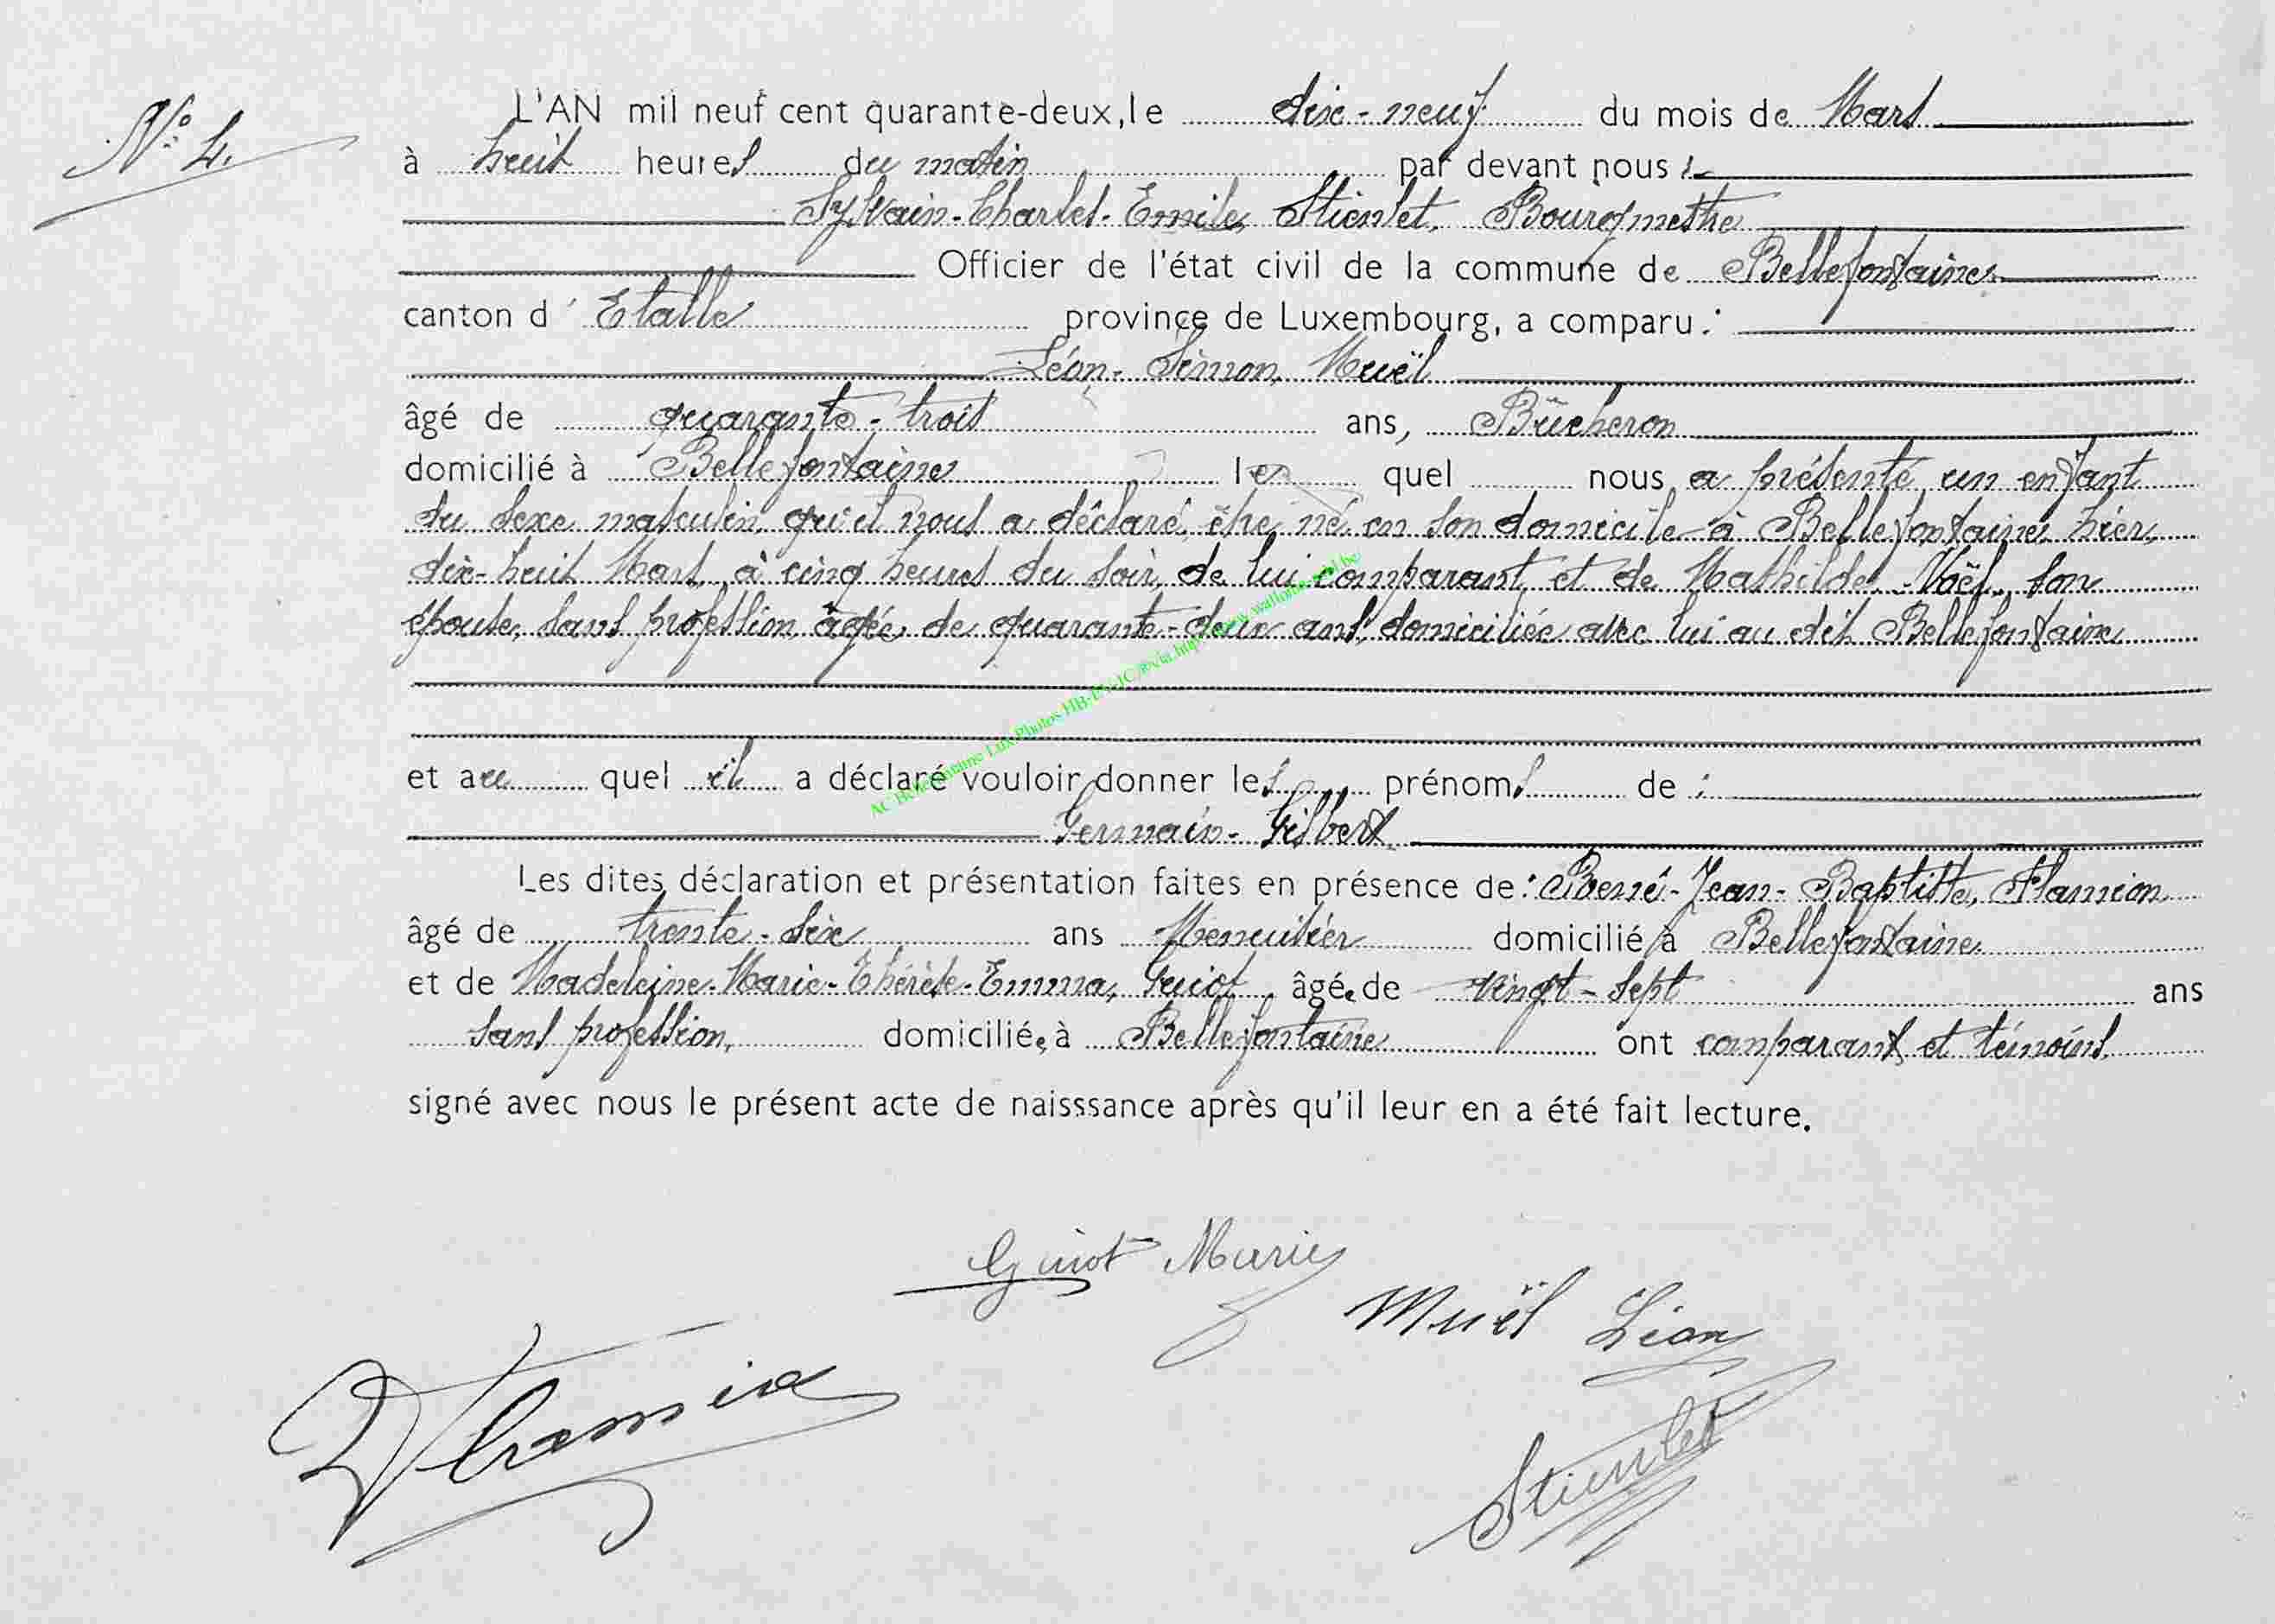 N° 4.
L'AN mil neuf cent quarante-deux, le dix-neuf du mois de Mars
à huit heures du matin par devant nous :
Sylvain-Charles-Emile, Stienlet, Bourgmestre
Officier de l'état civil de la commune de Bellefontaine
canton d' Etalle province de Luxembourg, a comparu :
Léon-Simon, Muël
âgé de quarante-trois ans, Bûcheron
domicilié à Bellefontaine le quel nous a présenté un enfant
du sexe masculin, qu'il nous a déclaré être né en son domicile à Bellefontaine, hier,
dix-huit Mars, à cinq heures du soir, de lui comparant, et de Mathilde, Noël, son
épouse, sans profession, âgée de quarante-deux ans, domiciliée avec lui au dit Bellefontaine
et au quel il a déclaré vouloir donner les prénoms de :
Germain-Gilbert
Les dites déclaration et présentation faites en présence de : René-Jean-Baptiste, Flamion
âgé de trente-six ans Menuisier domicilié à Bellefontaine
et de Madeleine-Marie-Thérèse-Emma, Guiot, âgée de vingt-sept ans
sans profession, domiciliée à Bellefontaine ont comparant et témoins
signé avec nous le présent acte de naisssance après qu'il leur en a été fait lecture.
Guiot Marie
Muël Léon
Stienlet